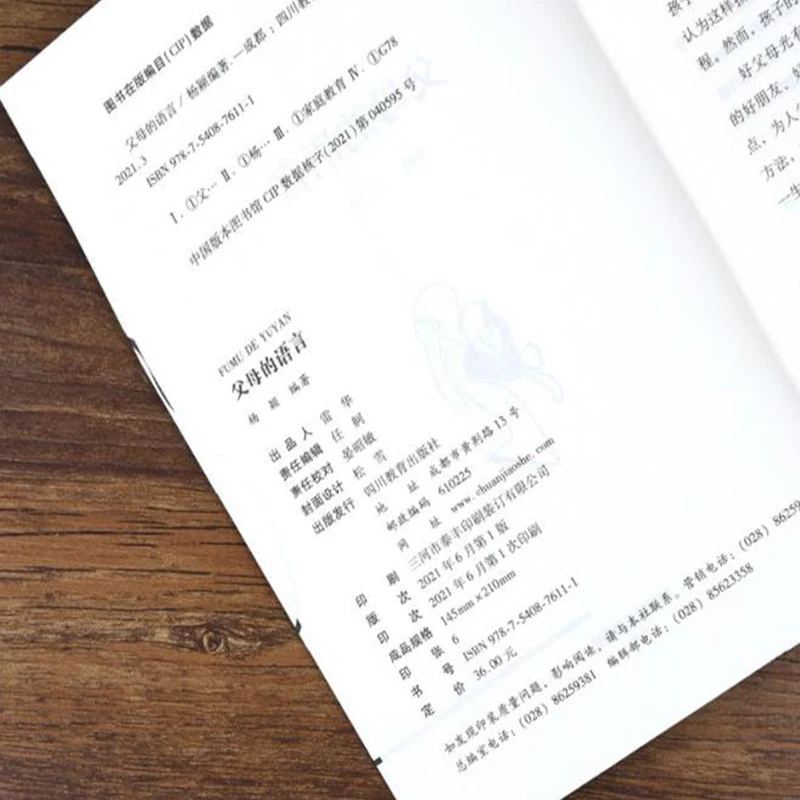 图书在版编目（CIP）数据
父母的语言 / 杨颖编著. —成都：四川教
2021.3
ISBN 978-7-5408-7611-1
Ⅰ. ①父… Ⅱ. ①杨… Ⅲ. ①家庭教育 Ⅳ. ①G78
中国版本图书馆 CIP 数据核字（2021）第 040595 号
FUMU DE YUYAN
父母的语言
杨 颖 编著
出 品 人 雷 华
责任编辑 任 舸
责任校对 晏昭敏
封面设计 松 雪
出版发行 四川教育出版社
地 址 成都市黄荆路 13 号
邮政编码 610225
网 址 www.chuanjiaoshe.com
印 刷 三河市泰丰印刷装订有限公司
版 次 2021 年 6 月第 1 版
印 次 2021 年 6 月第 1 次印刷
成品规格 145mm×210mm
印 张 6
书 号 ISBN 978-7-5408-7611-1
定 价 36.00 元
如发现印装质量问题，影响阅读，请与本社联系。营销电话：（028）86259
总编室电话：（028）86259381 编辑部电话：（028）85623358
认为这样
程。然而，孩子的
好父母光有
的好朋友、好
点，为人
方法，
一生